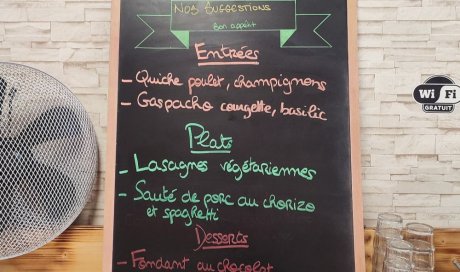 Nos Suggestions
Bon appétit
Entrées
- Quiche poulet, champignons
- Gaspacho courgette, basilic
Plats
- Lasagnes végétariennes
- Sauté de porc au chorizo
et spaghetti
Desserts
- Fondant au chocolat
Wi Fi
GRATUIT